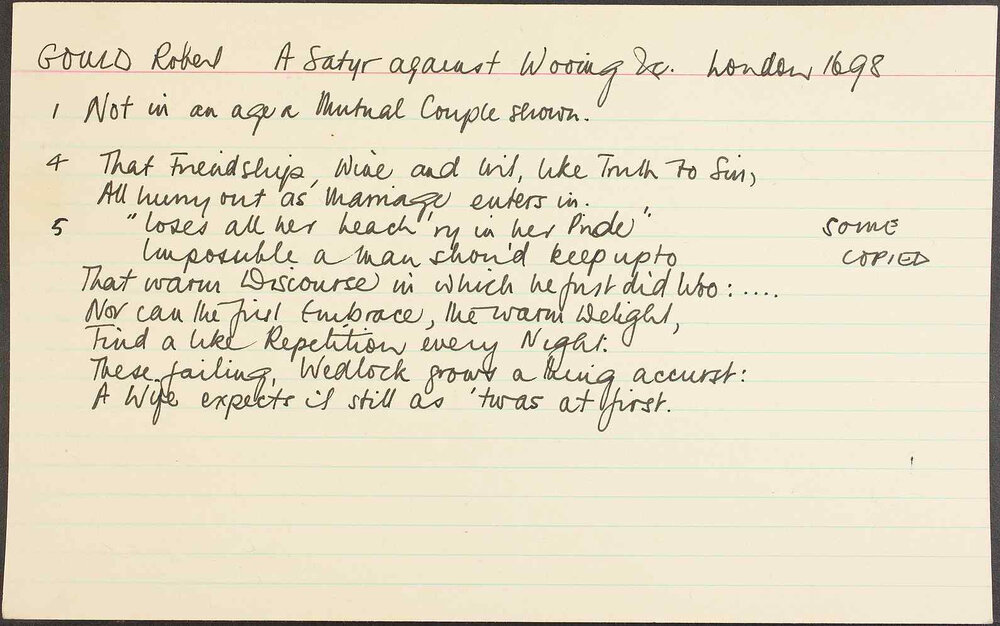 GOULD Robert A Satyr against Wooing &c. London 1698
1 Not in an age a Mutual Couple shown.
4 That Friendship, Wine and Wit, like Truth to Sin,
All hurry out as Marriage enters in.
5 "loses all her Leach'ry in her Pride" SOME
Impossible a man shou'd keep up to COPIED
That warm Discourse in which he first did Woo: ....
Nor can the first Embrace, the warm Delight,
Find a like Repetition every Night.
These failing, Wedlock grows a thing accurst:
A Wife expects it still as 'twas at first.